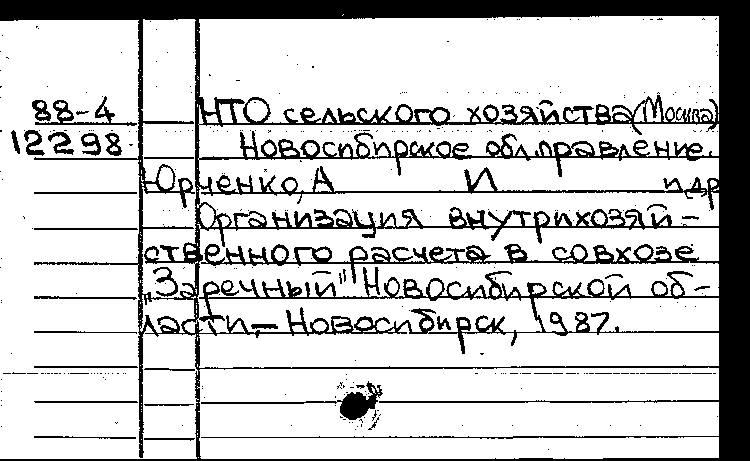 88-4 НТО сельского хозяйства (Москва)
12298 Новосибирское обл. правление.
Юрченко, А И и др
Организация внутрихозяй-
ственного расчета в совхозе
„Заречный" Новосибирской об-
ласти,— Новосибирск, 1987.